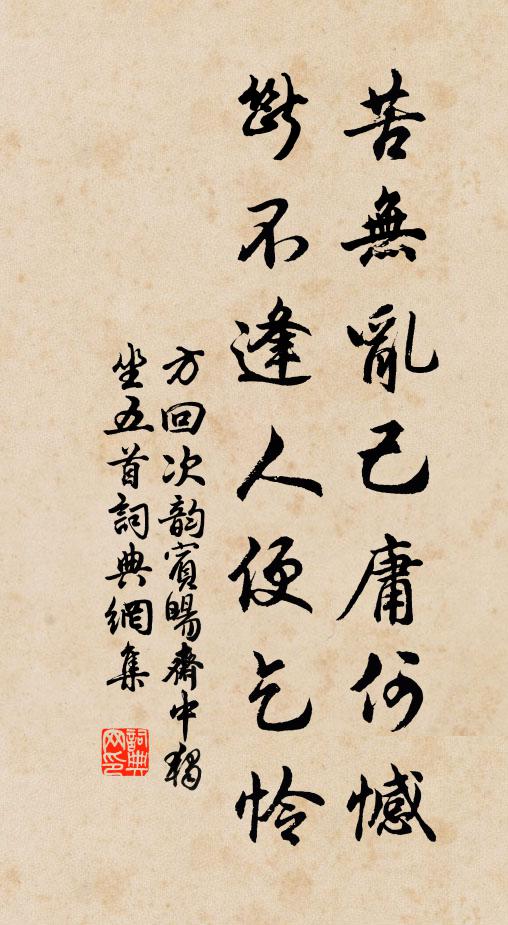 苦無亂已庸何憾
斷不逢人便乞憐
方回次韵賓暘齋中獨
坐五首詞典網集
詞典
网印